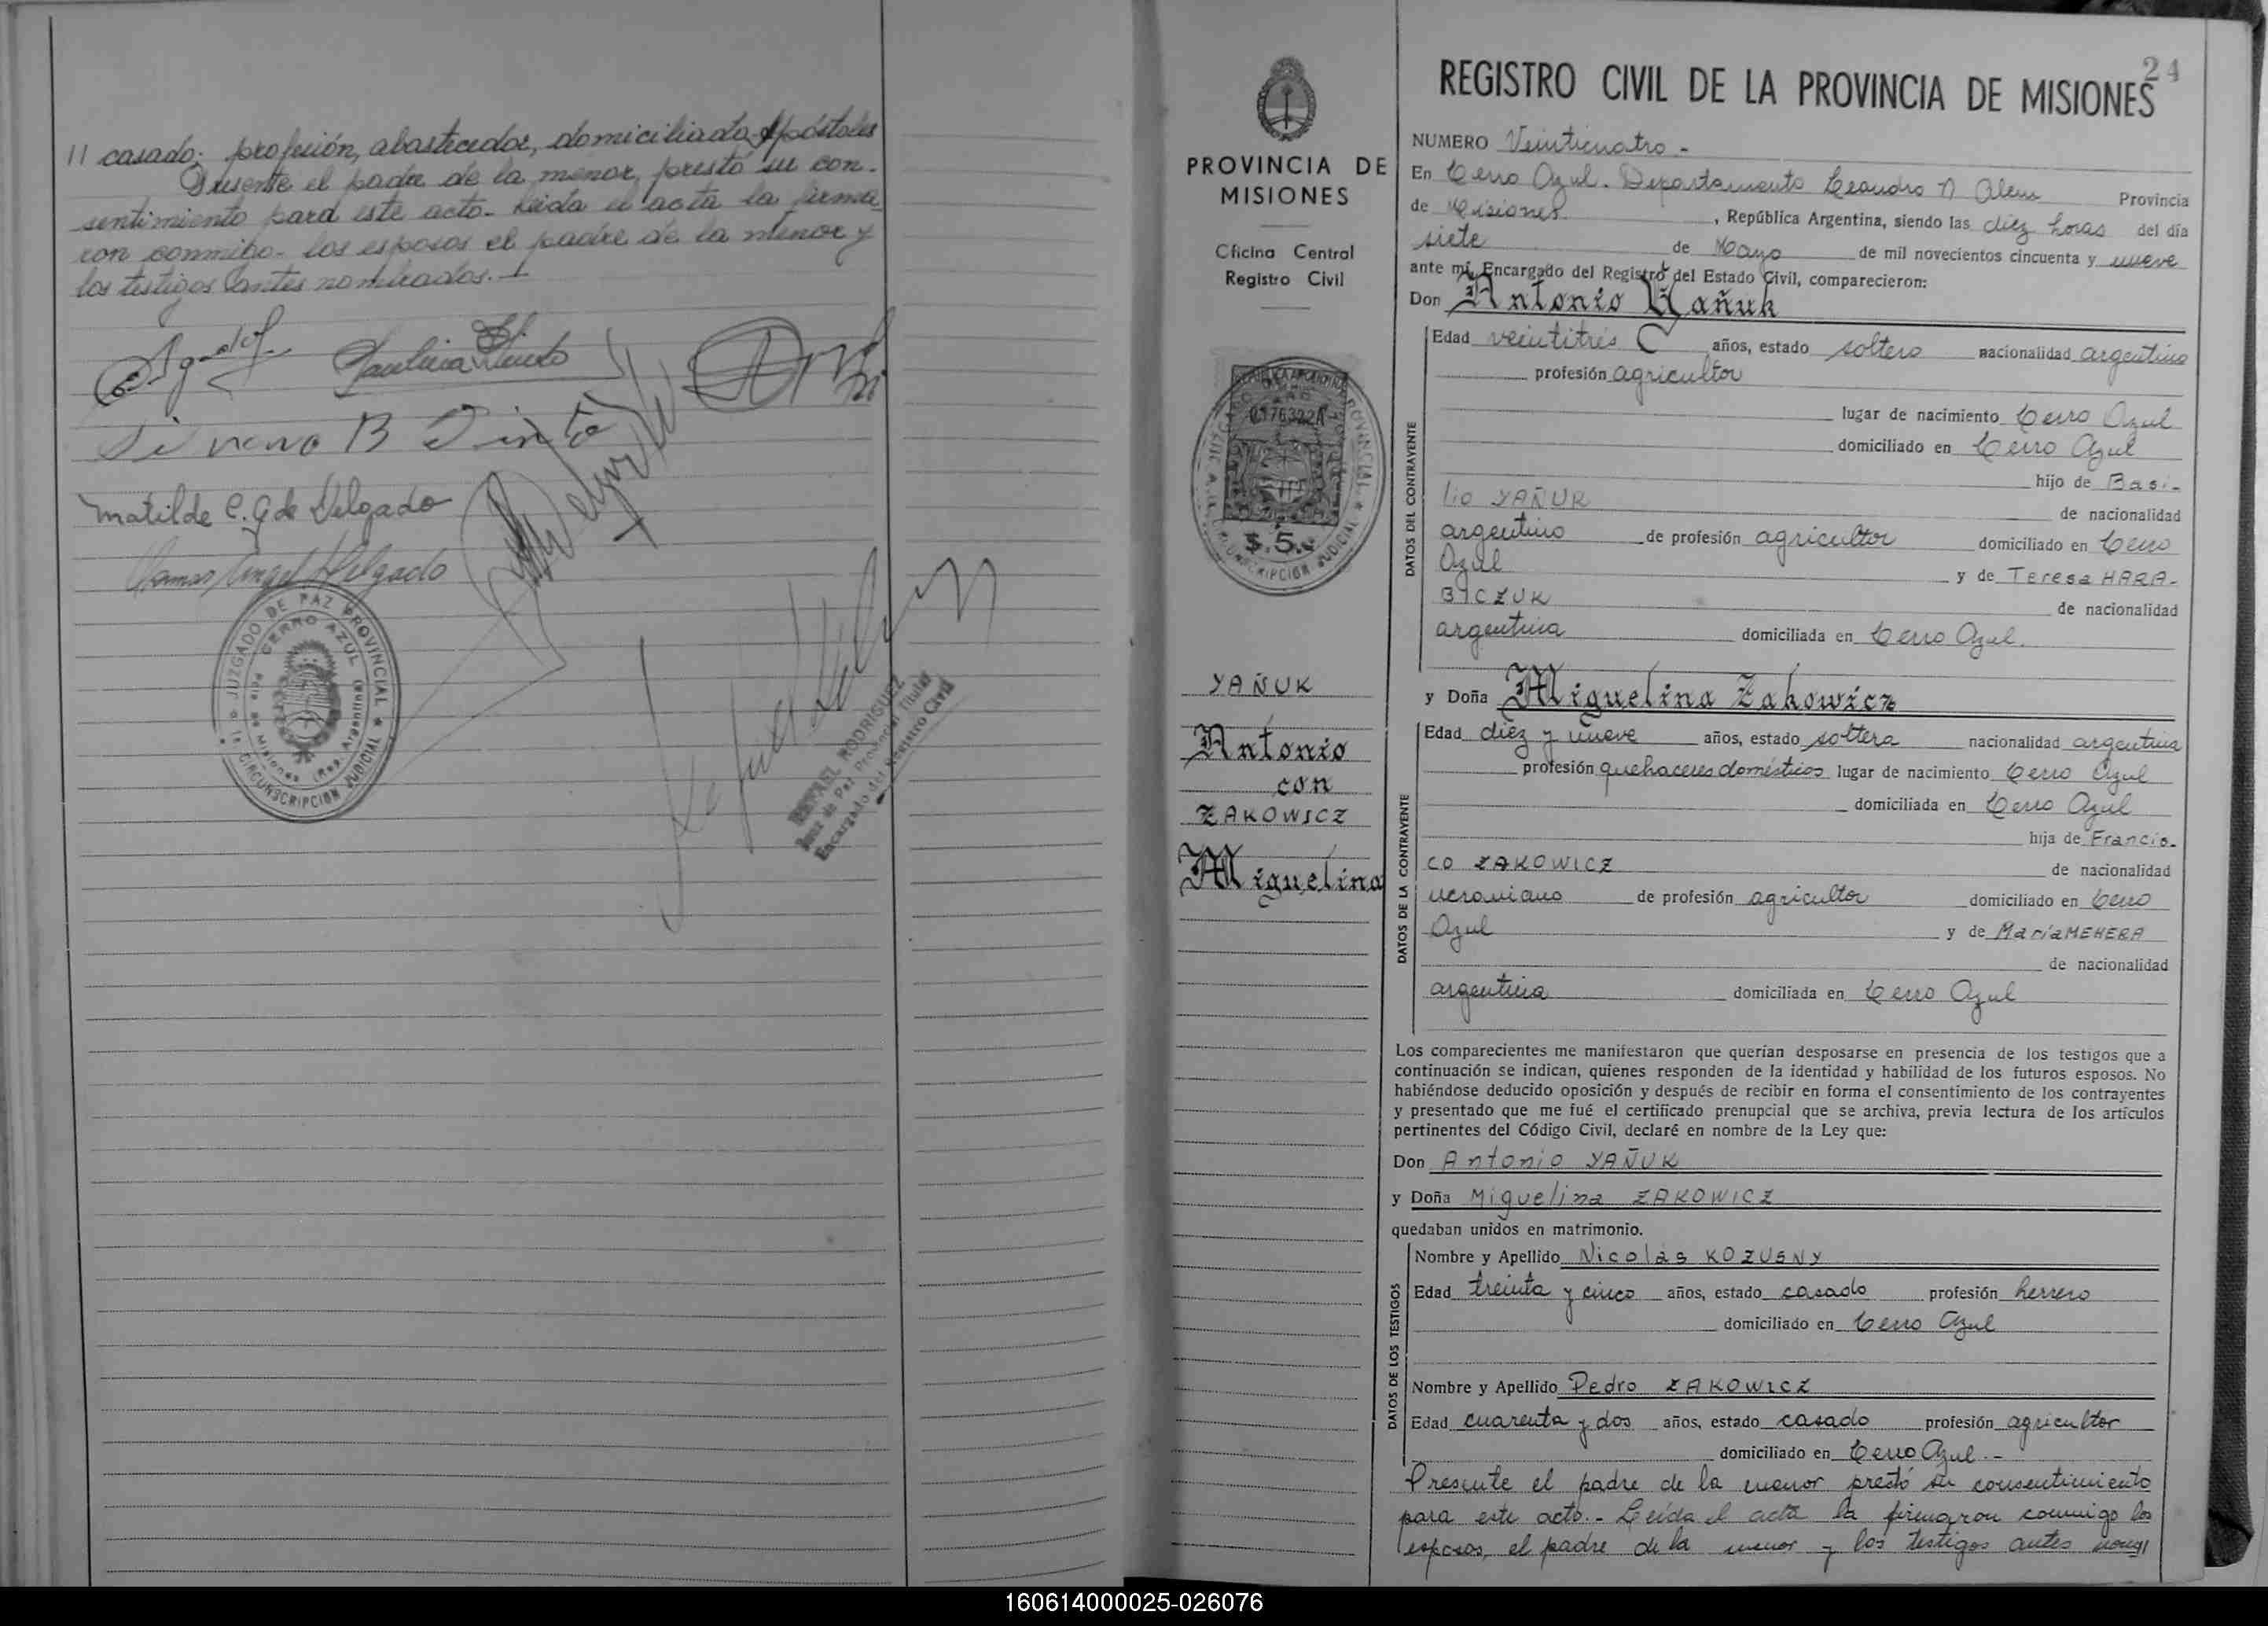 11 casado; profesión, abastecedor, domiciliado Apóstoles
Presente el padre de la menor, prestó su con-
sentimiento para este acto.- Leida el acta la firma
ron conmigo- los esposos el padre de la menor y
los testigos antes nombrados.-
Silvano B Pinto
Matilde C. G de Delgado
Tomas Angel Delgado
JUZGADO DE PAZ PROVINCIAL
CERRO AZUL
Pcia. de Misiones (Rep. Argentina)
1a. CIRCUNSCRIPCION JUDICIAL
RAFAEL RODRIGUEZ
Juez de Paz Provincial Titular
Encargado del Registro Civil
PROVINCIA DE
MISIONES
Oficina Central
Registro Civil
0176322A
$.5.-
YAÑUK
Antonio
con
ZAKOWICZ
Miguelina
24
REGISTRO CIVIL DE LA PROVINCIA DE MISIONES
NUMERO Veinticuatro.-
En Cerro Azul. Departamento Leandro N Alem Provincia
de Misiones, República Argentina, siendo las diez horas del día
siete de Mayo de mil novecientos cincuenta y nueve
ante mí, Encargado del Registro del Estado Civil, comparecieron:
Don Antonio Yañuk
DATOS DEL CONTRAYENTE
Edad veintitrés años, estado soltero nacionalidad argentino
profesión agricultor
lugar de nacimiento Cerro Azul
domiciliado en Cerro Azul
hijo de Basi-
lio YAÑUK de nacionalidad
argentino de profesión agricultor domiciliado en Cerro
Azul y de Teresa HARA-
BICZUK de nacionalidad
argentina domiciliada en Cerro Azul.
y Doña Miguelina Zakowicz
DATOS DE LA CONTRAYENTE
Edad diez y nueve años, estado soltera nacionalidad argentina
profesión quehaceres domésticos lugar de nacimiento Cerro Azul
domiciliada en Cerro Azul
hija de Francis-
co ZAKOWICZ de nacionalidad
ucraniano de profesión agricultor domiciliado en Cerro
Azul y de María MEHERA
de nacionalidad
argentina domiciliada en Cerro Azul
Los comparecientes me manifestaron que querían desposarse en presencia de los testigos que a
continuación se indican, quienes responden de la identidad y habilidad de los futuros esposos. No
habiéndose deducido oposición y después de recibir en forma el consentimiento de los contrayentes
y presentado que me fué el certificado prenupcial que se archiva, previa lectura de los artículos
pertinentes del Código Civil, declaré en nombre de la Ley que:
Don Antonio YAÑUK
y Doña Miguelina ZAKOWICZ
quedaban unidos en matrimonio.
DATOS DE LOS TESTIGOS
Nombre y Apellido Nicolás KOZUSNY
Edad treinta y cinco años, estado casado profesión herrero
domiciliado en Cerro Azul
Nombre y Apellido Pedro ZAKOWICZ
Edad cuarenta y dos años, estado casado profesión agricultor
domiciliado en Cerro Azul.-
Presente el padre de la menor prestó su consentimiento
para este acto.- Leída el acta la firmaron conmigo los
esposos, el padre de la menor y los testigos antes
160614000025-026076